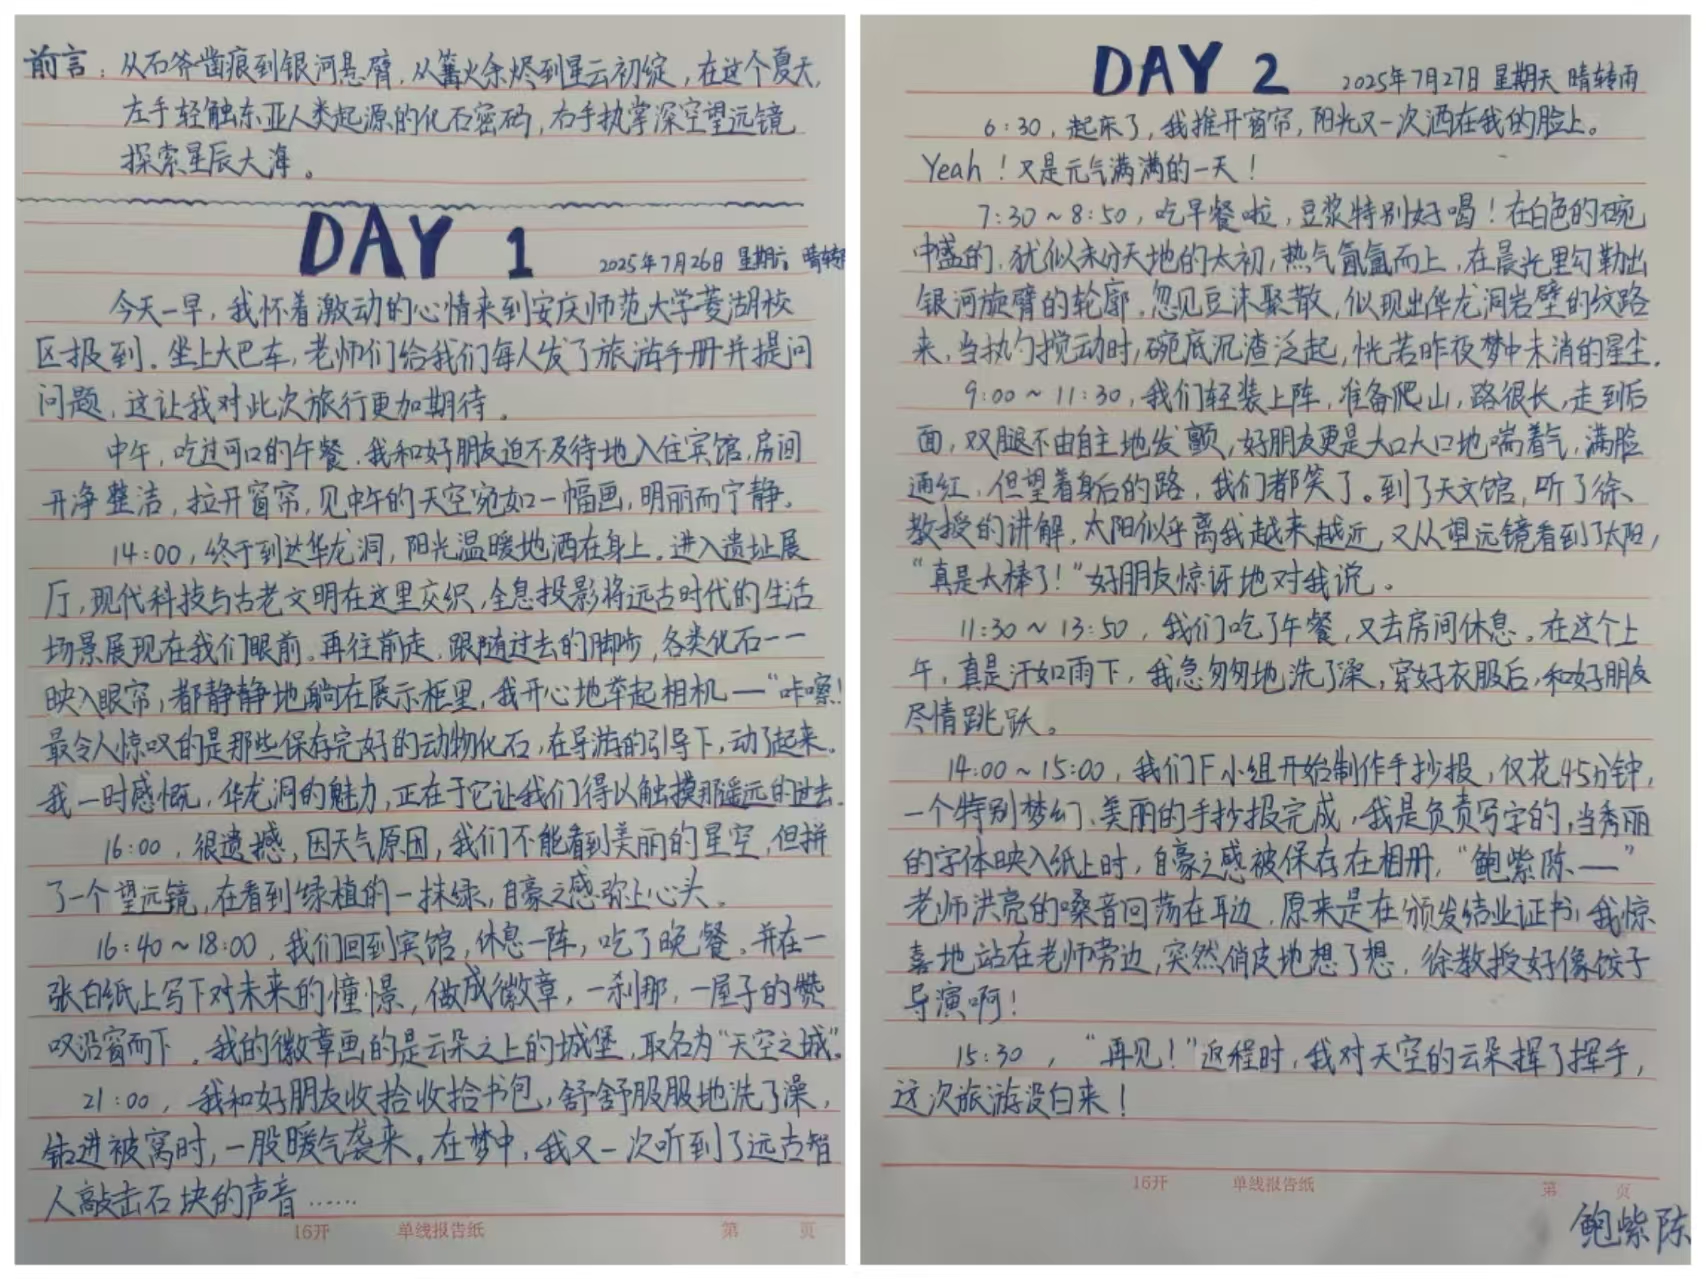 前言：从石斧凿痕到银河悬臂，从篝火余烬到星云初绽，在这个夏天，
左手轻触东亚人类起源的化石密码，右手执掌深空望远镜
探索星辰大海。
DAY 1
2025年7月26日 星期六 晴转
今天一早，我怀着激动的心情来到安庆师范大学菱湖校
区报到。坐上大巴车，老师们给我们每人发了旅游手册并提问
问题，这让我对此次旅行更加期待。
中午，吃过可口的午餐，我和好朋友迫不及待地入住宾馆，房间
开净整洁，拉开窗帘，见中午的天空宛如一幅画，明丽而宁静。
14:00，终于到达华龙洞，阳光温暖地洒在身上。进入遗址展
厅，现代科技与古老文明在这里交织，全息投影将远古时代的生活
场景展现在我们眼前。再往前走，跟随过去的脚步，各类化石一一
映入眼帘，都静静地躺在展示柜里，我开心地举起相机—“咔嚓！
最令人惊叹的是那些保存完好的动物化石，在导游的引导下，动了起来。
我一时感慨，华龙洞的魅力，正在于它让我们得以触摸那遥远的过去。
16:00，很遗憾，因天气原因，我们不能看到美丽的星空，但拼
了一个望远镜，在看到绿植的一抹绿，自豪之感弥上心头。
16:40～18:00，我们回到宾馆，休息一阵，吃了晚餐。并在一
张白纸上写下对未来的憧憬，做成徽章，一刹那，一屋子的赞
叹沿窗而下。我的徽章画的是云朵之上的城堡，取名为“天空之城”。
21:00，我和好朋友收拾收拾书包，舒舒服服地洗了澡，
钻进被窝时，一股暖气袭来。在梦中，我又一次听到了远古智
人敲击石块的声音……
16开 单线报告纸 第 页
DAY 2
2025年7月27日 星期天 晴转雨
6:30，起床了，我推开窗帘，阳光又一次洒在我的脸上。
Yeah！又是元气满满的一天！
7:30～8:50，吃早餐啦，豆浆特别好喝！在白色的碗
中盛的，犹似未分天地的太初，热气氤氲而上，在晨光里勾勒出
银河旋臂的轮廓。忽见豆沫聚散，似现出华龙洞岩壁的纹路
来，当执勺搅动时，碗底沉渣泛起，恍若昨夜梦中未消的星尘。
9:00～11:30，我们轻装上阵，准备爬山，路很长，走到后
面，双腿不由自主地发颤，好朋友更是大口大口地喘着气，满脸
通红，但望着身后的路，我们都笑了。到了天文馆，听了徐
教授的讲解，太阳似乎离我越来越近，又从望远镜看到了太阳，
“真是太棒了！”好朋友惊讶地对我说。
11:30～13:50，我们吃了午餐，又去房间休息。在这个上
午，真是汗如雨下，我急匆匆地洗了澡，穿好衣服后，和好朋友
尽情跳跃。
14:00～15:00，我们F小组开始制作手抄报，仅花45分钟，
一个特别梦幻、美丽的手抄报完成，我是负责写字的，当秀丽
的字体映入纸上时，自豪之感被保存在相册，“鲍紫陈—”
老师洪亮的嗓音回荡在耳边，原来是在颁发结业证书，我惊
喜地站在老师旁边，突然俏皮地想了想，徐教授好像饺子
导演啊！
15:30，“再见！”返程时，我对天空的云朵挥了挥手，
这次旅游没白来！
16开 单线报告纸 第 页
鲍紫陈